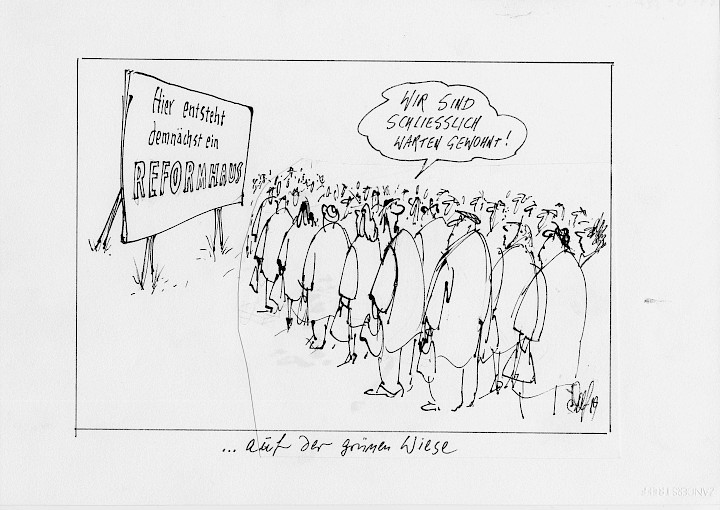 Hier entsteht
demnächst ein
REFORMHAUS
WIR SIND
SCHLIESSLICH
WARTEN GEWOHNT!
... auf der grünen Wiese